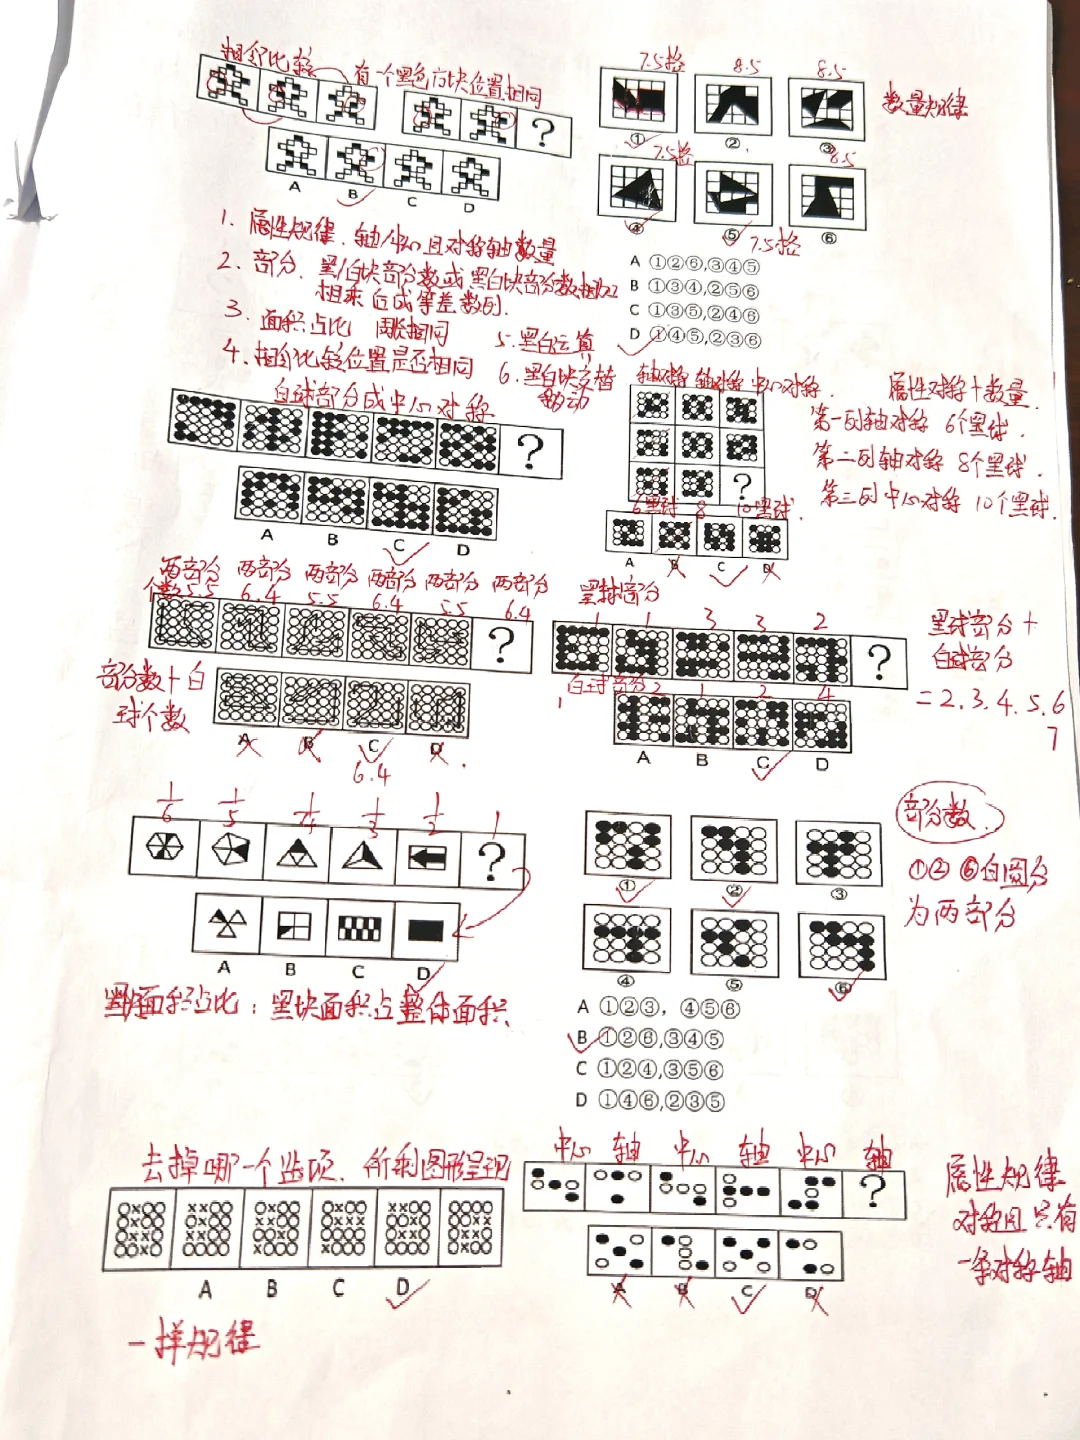 相邻比较
有一个黑色方块位置相同
?
A B C D
7.5格 8.5 8.5
数量规律
① ② ③
7.5格 8.5
④ ⑤ ⑥
7.5格
A ①②⑥,③④⑤
B ①③④,②⑤⑥
C ①③⑤,②④⑥
D ①④⑤,②③⑥
1. 属性规律、轴/中心且对称轴数量
2. 部分、黑/白块部分数或黑白块部分数相加
相乘后成等差数列.
3. 面积占比 周长相同
4. 相邻比较位置是否相同
5. 黑白运算
6. 黑白块交替
移动
白球部分成中心对称
?
A B C D
轴对称 轴对称 中心对称.
?
6黑球 8 10黑球.
A B C D
属性对称+数量.
第一列轴对称 6个黑球.
第二列轴对称 8个黑球.
第三列中心对称 10个黑球.
两部分 两部分 两部分 两部分 两部分 两部分
个数5.5 6.4 5.5 6.4 5.5 6.4
?
部分数+白
球个数
A B C D
6.4
黑球部分
1 1 3 3 2
?
白球部分
1 2 1 2 4
A B C D
黑球部分+
白球部分
=2.3.4.5.6
7
1/6 1/5 1/4 1/3 1/2 1
?
A B C D
黑面积占比:黑块面积占整体面积
① ② ③
④ ⑤ ⑥
A ①②③,④⑤⑥
B ①②⑥,③④⑤
C ①②④,③⑤⑥
D ①④⑥,②③⑤
部分数.
①②⑥白圆分
为两部分
去掉哪一个选项、所剩图形呈现
A B C D
一样规律
中心 轴 中心 轴 中心 轴
?
A B C D
属性规律
对称且只有
一条对称轴